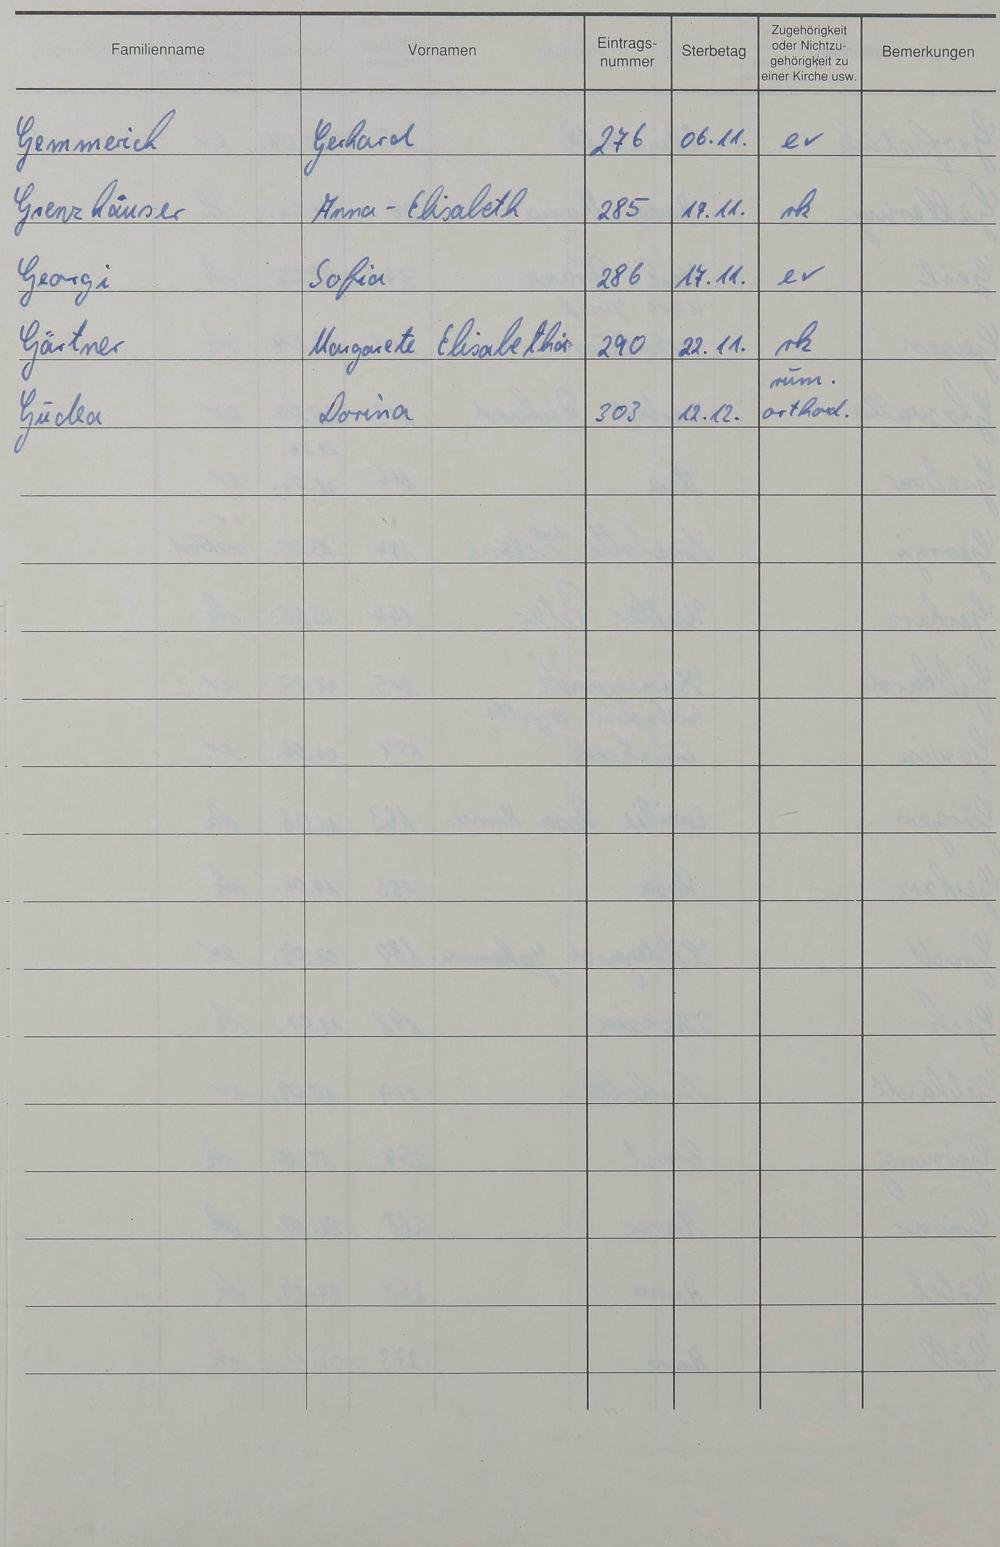 Familienname Vornamen Eintrags-nummer Sterbetag Zugehörigkeit oder Nichtzu-gehörigkeit zu einer Kirche usw. Bemerkungen
Gemmerich Gerhard 276 06.11. ev
Grenzhäuser Anna-Elisabeth 285 17.11. rk
Georgi Sofia 286 17.11. ev
Gärtner Margarete 290 22.11. rk
Gudea Dorina 303 12.12. rum. orthod.